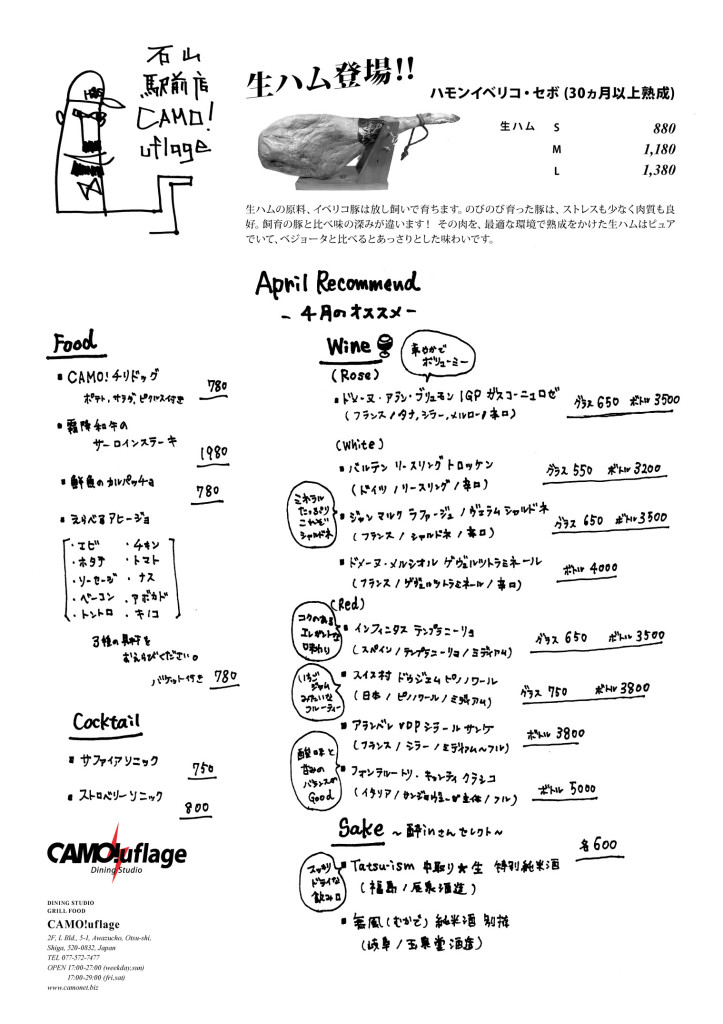 石山
駅前店
CAMO!
uflage
生ハム登場!!
ハモンイベリコ・セボ (30ヵ月以上熟成)
生ハム S 880
M 1,180
L 1,380
生ハムの原料、イベリコ豚は放し飼いで育ちます。のびのび育った豚は、ストレスも少なく肉質も良
好。飼育の豚と比べ味の深みが違います！ その肉を、最適な環境で熟成をかけた生ハムはピュア
でいて、ベジョータと比べるとあっさりとした味わいです。
April Recommend
- 4月のオススメ -
Food
・CAMO!チリドッグ 780
ポテト,サラダ,ピクルス付き
・霜降和牛の
サーロインステーキ
1980
・鮮魚のカルパッチョ
780
・えらべるアヒージョ
・エビ ・チキン
・ホタテ ・トマト
・ソーセージ ・ナス
・ベーコン ・アボカド
・トントロ ・キノコ
3種の具材を
おえらびください。
バケット付き 780
Cocktail
・サファイアソニック
750
・ストロベリーソニック
800
Wine
華やかで
ボリューミー
(Rose)
・ドメーヌ・アラン・ブリュモン IGP ガスコーニュロゼ
(フランス/タナ,シラー,メルロー/辛口)
グラス 650 ボトル 3500
(White)
・バルテン リースリング トロッケン
(ドイツ/リースリング/辛口)
グラス 550 ボトル 3200
ミネラル
たっぷり
これぞ
シャルドネ
・ジャン マルク ラファージュ/ヴェラム シャルドネ
(フランス/シャルドネ/辛口)
グラス 650 ボトル 3500
・ドメーヌ・メルシオル ゲヴェルツトラミネール
(フランス/ゲヴェルツトラミネール/辛口)
ボトル 4000
(Red)
コクのある
エレガントな
味わい
・インフィニタス テンプラニーリョ
(スペイン/テンプラニーリョ/ミディアム)
グラス 650 ボトル 3500
いちご
ジャム
みたいな
フルーティー
・スイス村 ドゥジェム ピノノワール
(日本/ピノノワール/ミディアム)
グラス 750 ボトル 3800
・アランベレ VDP シラー ル サンケ
(フランス/シラー/ミディアム〜フル)
ボトル 3800
酸味と
甘みの
バランスが
Good
・ファンテルートリ・キャンティ クラシコ
(イタリア/サンジョヴェーゼ主体/フル)
ボトル 5000
Sake 〜酔inさんセレクト〜
各600
スッキリ
ドライな
飲み口
・Tatsu-ism 中取り★生 特別純米酒
(福島/辰泉酒造)
(むかで) 純米酒 別撰
(岐阜/玉泉堂酒造)
CAMO!uflage
Dining Studio
DINING STUDIO
GRILL FOOD
CAMO!uflage
2F, L Bld., 5-1, Awazucho, Otsu-shi,
Shiga, 520-0832, Japan
TEL 077-572-7477
OPEN 17:00-27:00 (weekday,sun)
17:00-29:00 (fri,sat)
www.camonet.biz